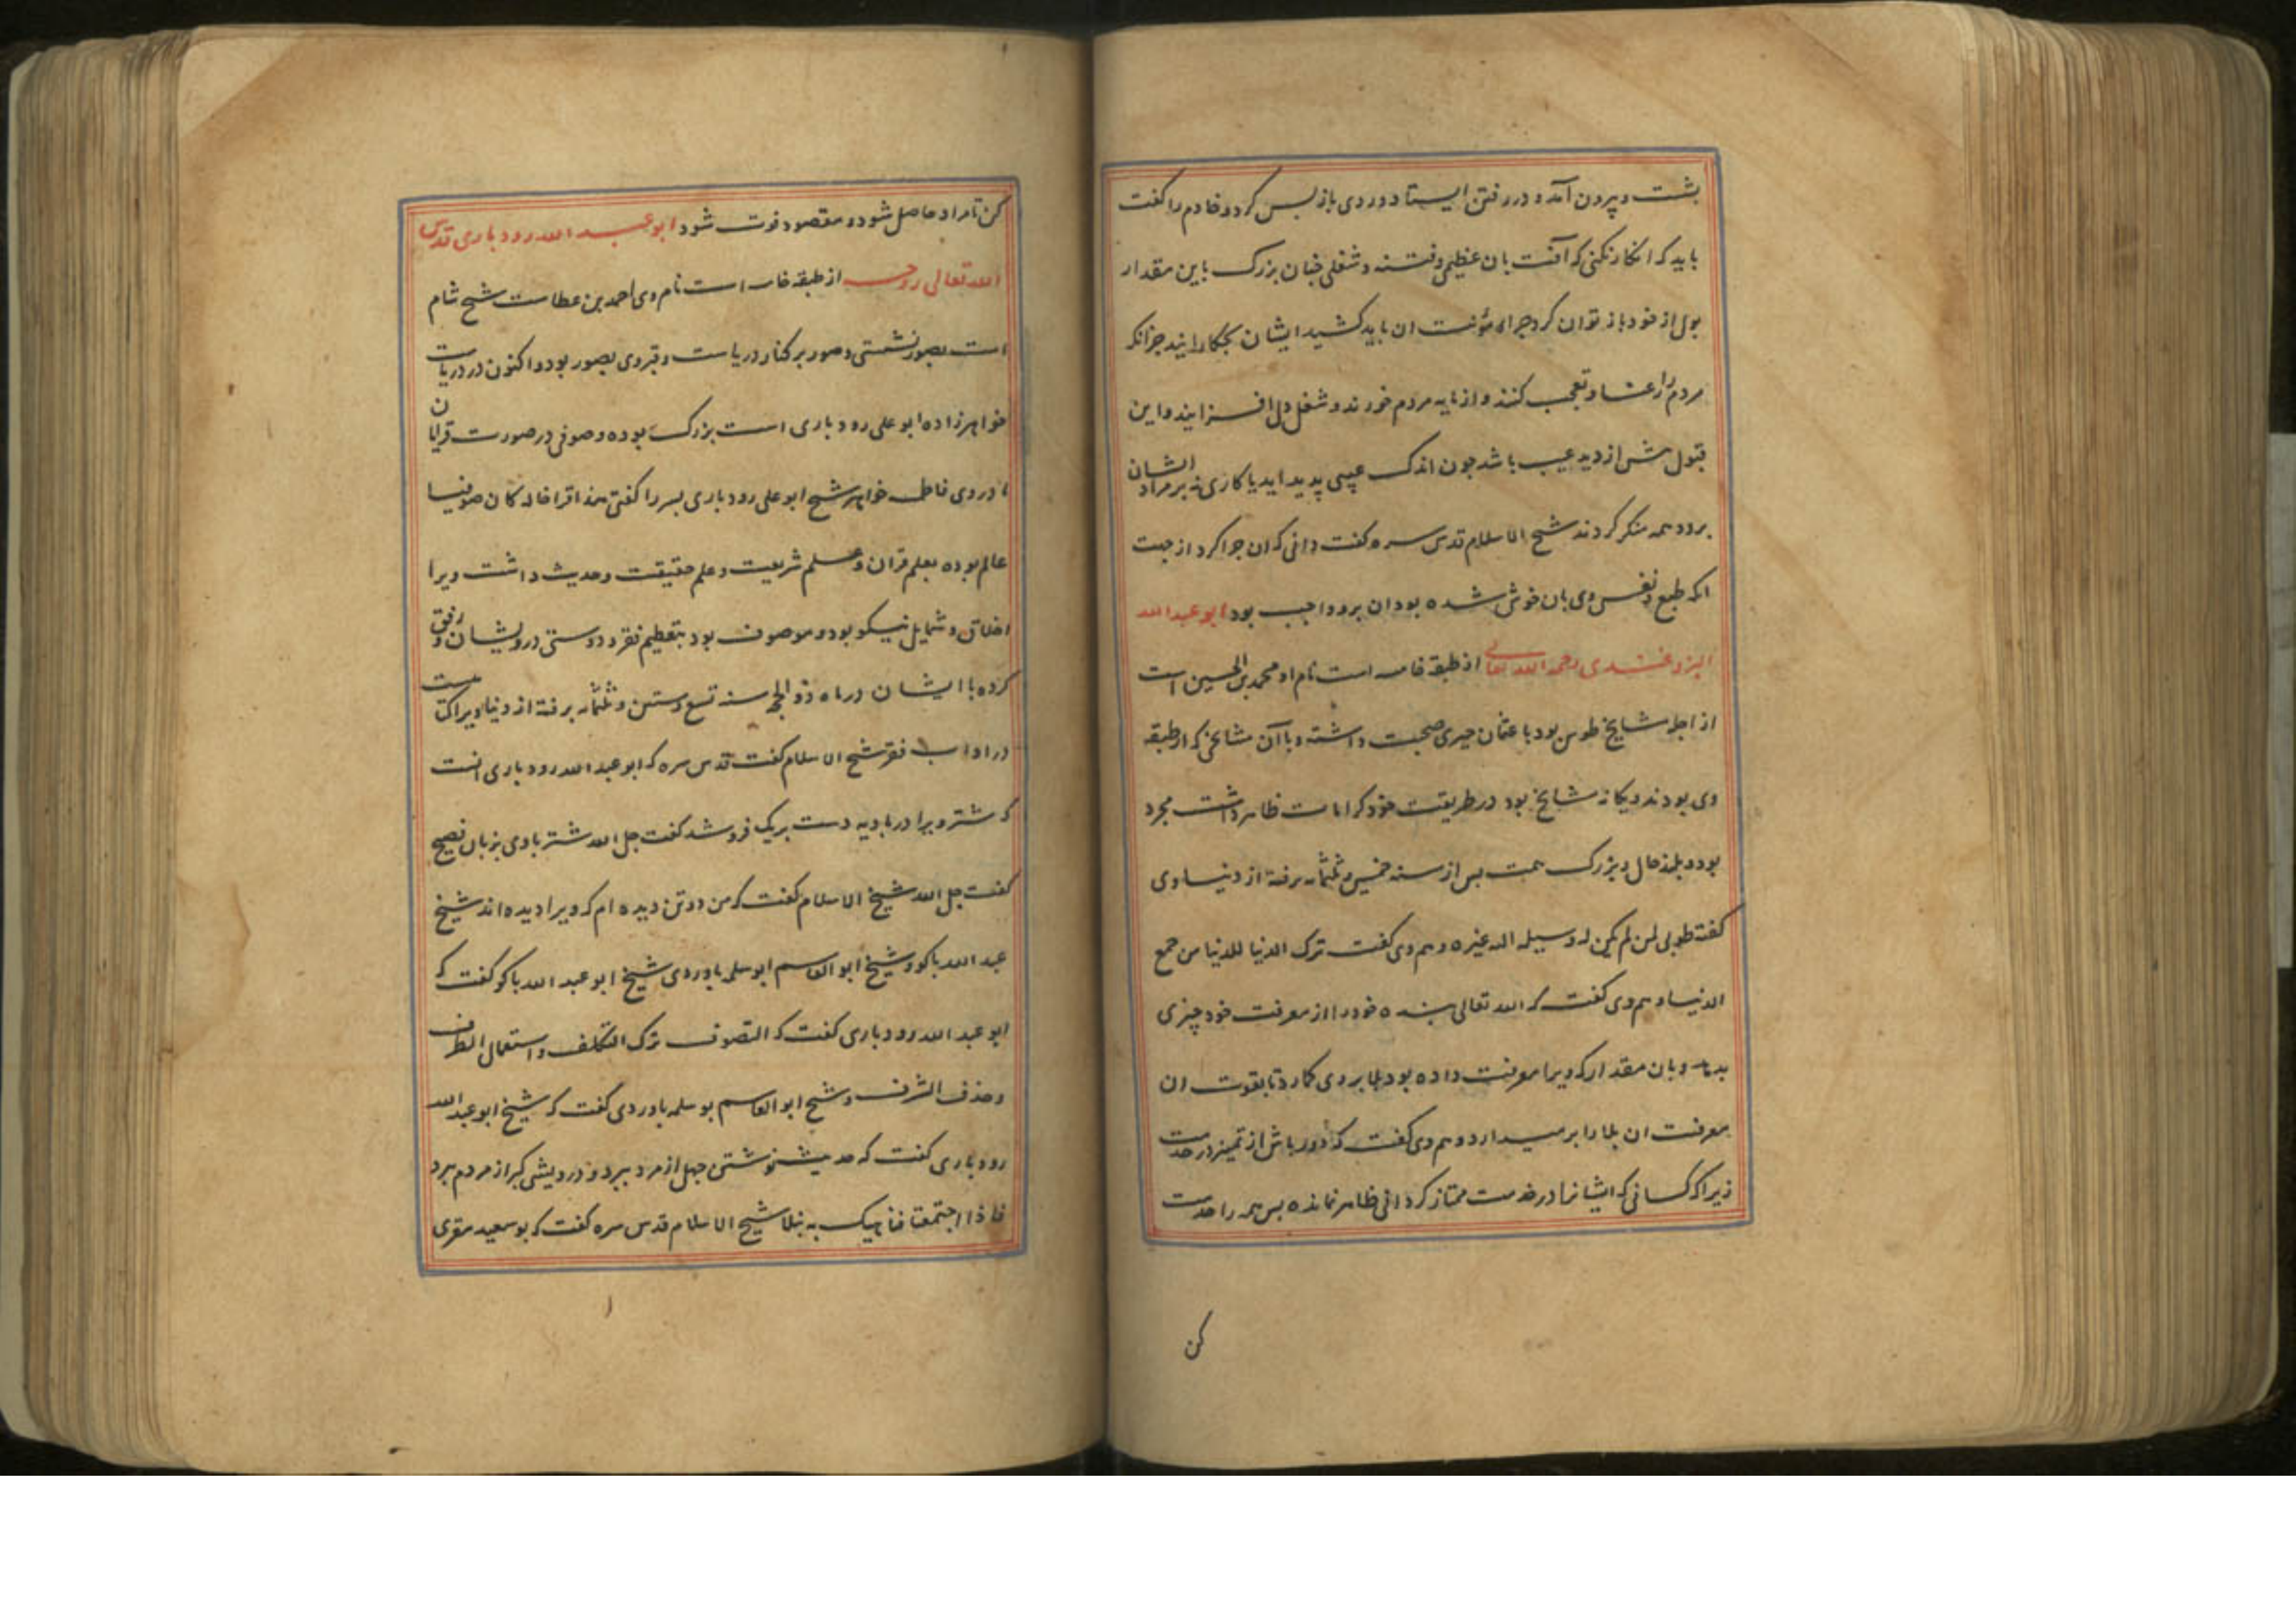 بشت و بیرون آمد و در رفتن ایستاد و روی باز بس کرد و خادم را کفت
باید که انکار نکنی که آفت بان عظیمی و فتنه و شغلی جنان بزرک باین مقدار
بول از خود باز توان کرد جرا مؤنت ان باید کشید ایشان بجکار ایند جز انکه
مردم را عشا و تعجب کنند و از مایه مردم خورند و شغل دل افزایند و این
قبول مش از دید عیب باشد جون اندک عیبی پدید اید یا کاری نه بر مراد ایشان
برود همه منکر کردند شیخ الاسلام قدس سره کفت دانی که ان جرا کرد از جهت
انکه طبع و نفس وی بان خوش شده بود ان برو واجب بود ابو عبد الله
التروغبدی رحمه الله تعالی از طبقه خامسه است نام او محمد بن الحسین است
از اجله مشایخ طوس بود با عثمان حیری صحبت داشته و با آن مشایخی که از طبقه
وی بودند و یکانه مشایخ بود در طریقت خود کرامات ظاهر داشت مجرد
بود و بلند حال و بزرک همت بس از سنه خمسین و ثلثمائه برفته از دنیا وی
کفته طوبی لمن لم یکن له وسیله الیه غیره و هم وی کفت ترک الدنیا للدنیا من جمع
الدنیا و هم وی کفت که الله تعالی بنده خود را از معرفت خود چیزی
بدهد و بان مقدار که ویرا معرفت داده بود بلا بر وی کمارد تا بقوت ان
معرفت ان بلا را بر میدارد و هم وی کفت که دور باش از تمییز در خدمت
زیرا که کسانی که ایشانرا در خدمت ممتاز کردانی ظاهر نمانده بس همه را خدمت
کن
کن تا مراد حاصل شود و مقصود فوت نشود ابو عبد الله رودباری قدس
الله تعالی روحه از طبقه خامسه است نام وی احمد بن عطاست شیخ شام
است بصور نشستی و صور بر کنار دریاست و قبر وی بصور بود و اکنون در دریاست
خواهرزاده ابو علی رودباری است بزرک بوده و صوفی در صورت قرایان
مادر وی فاطمه خواهر شیخ ابو علی رودباری بسر را کفتی هذا قرا خاله کان صوفیا
عالم بوده بعلم قران و علم شریعت و علم حقیقت و حدیث داشت ویرا
اخلاق و شمایل نیکو بود و موصوف بود بتعظیم فقر و دوستی درویشان و رفق
کرده با ایشان در ماه ذو الحجه سنه تسع و ستین و ثلثمائه برفته از دنیا ویراکتابست
در اداب فقر شیخ الاسلام کفت قدس سره که ابو عبد الله رودباری انست
که شتر ویرا در بادیه دست بریک فرو شد کفت جل الله شتر با وی بزبان فصیح
کفت جل الله شیخ الاسلام کفت که من دو تن دیده ام که ویرا دیده اند شیخ
عبد الله باکو و شیخ ابو القاسم ابو سلمه باوردی شیخ ابو عبد الله باکو کفت که
ابو عبد الله رودباری کفت که التصوف ترک التکلف و استعمال التظرف
و حذف التشرف و شیخ ابو القاسم بو سلمه باوردی کفت که شیخ ابو عبد الله
رودباری کفت که حدیث نوشتن جهل از مرد ببرد و درویشی کبر از مردم ببرد
فاذا اجتمعتا فناهیک به نبلا شیخ الاسلام قدس سره کفت که بو سعید مقری